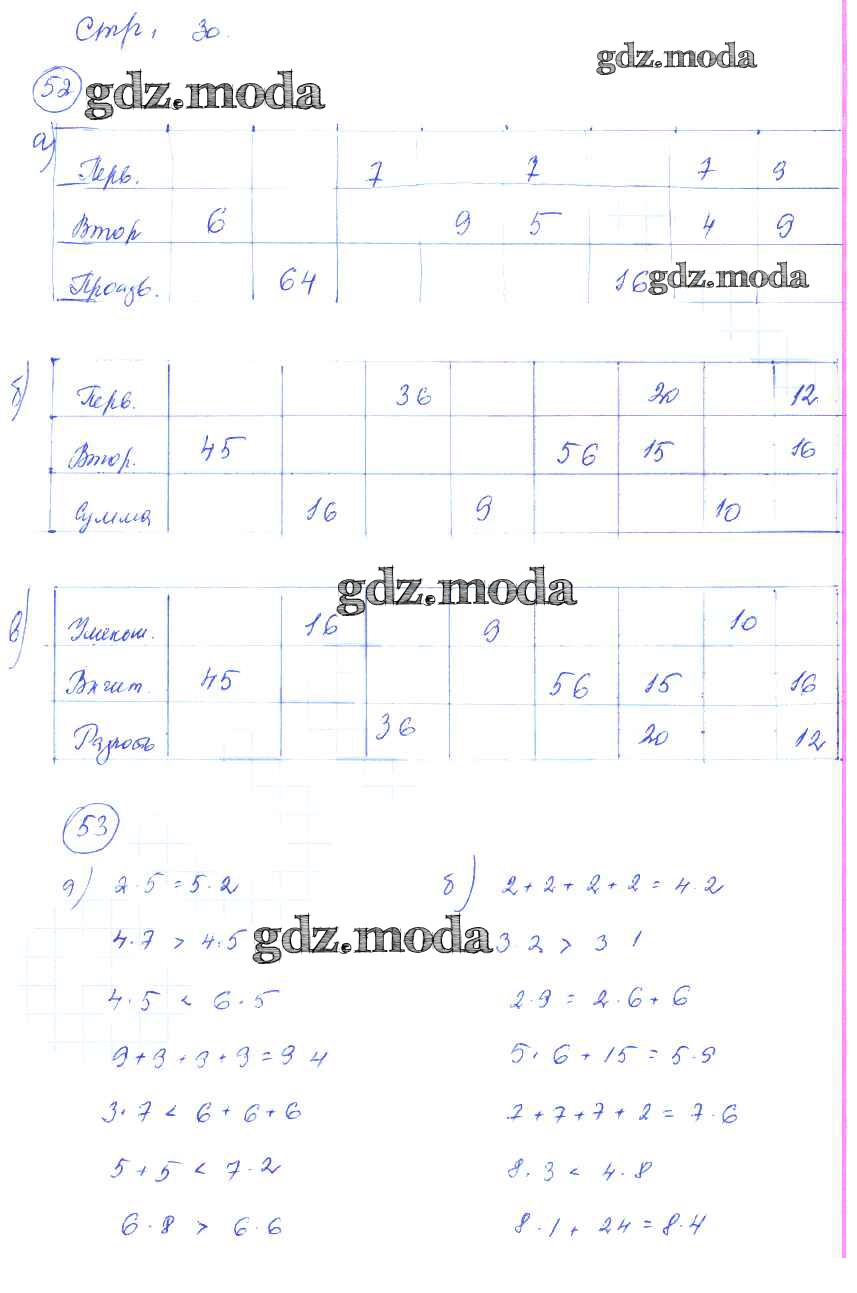 Стр. 30.
gdz.moda
52 gdz.moda
а)
Перв. 7 7 7 9
Втор 6 9 5 4 9
Произв. 64 16 gdz.moda
б)
Перв. 36 20 12
Втор. 45 56 15 16
Сумма 16 9 10
gdz.moda
в)
Уменьш. 16 9 10
Вычит. 45 56 15 16
Разность 36 20 12
53
а) 2·5=5·2 б) 2+2+2+2=4·2
4·7 > 4·5 gdz.moda 3 2 > 3 1
4·5 < 6·5 2·9 = 2·6+6
9+9+9+9=9 4 5·6+15=5·9
3·7 < 6+6+6 7+7+7+2=7·6
5+5 < 7·2 8·3 < 4·8
6·8 > 6·6 8·1+24=8·4